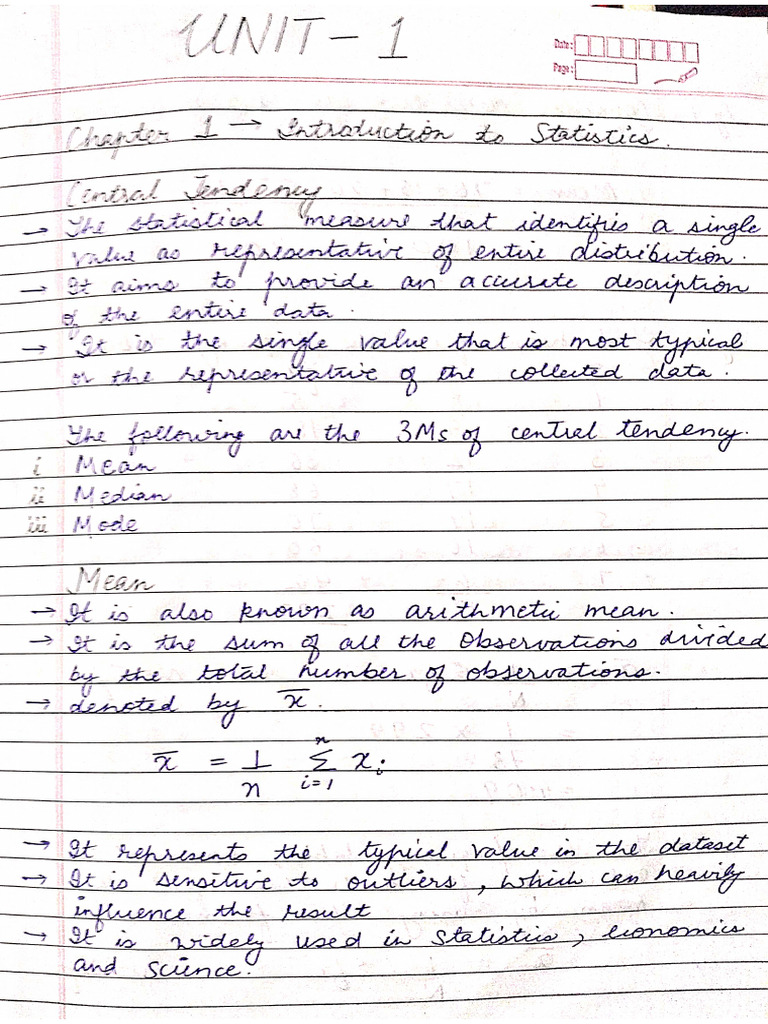 UNIT - 1
Date:
Page:
Chapter 1 → Introduction to Statistics.
Central Tendency
→ The statistical measure that identifies a single
value as representative of entire distribution.
→ It aims to provide an accurate description
of the entire data.
→ It is the single value that is most typical
or the representative of the collected data.
The following are the 3Ms of central tendency.
i Mean
ii Median
iii Mode
Mean
→ It is also known as arithmetic mean.
→ It is the sum of all the observations divided
by the total number of observations.
→ denoted by x̄.
x̄ = 1/n ∑ᵢ₌₁ⁿ xᵢ
→ It represents the typical value in the dataset
→ It is sensitive to outliers, which can heavily
influence the result
→ It is widely used in statistics, economics
and science.